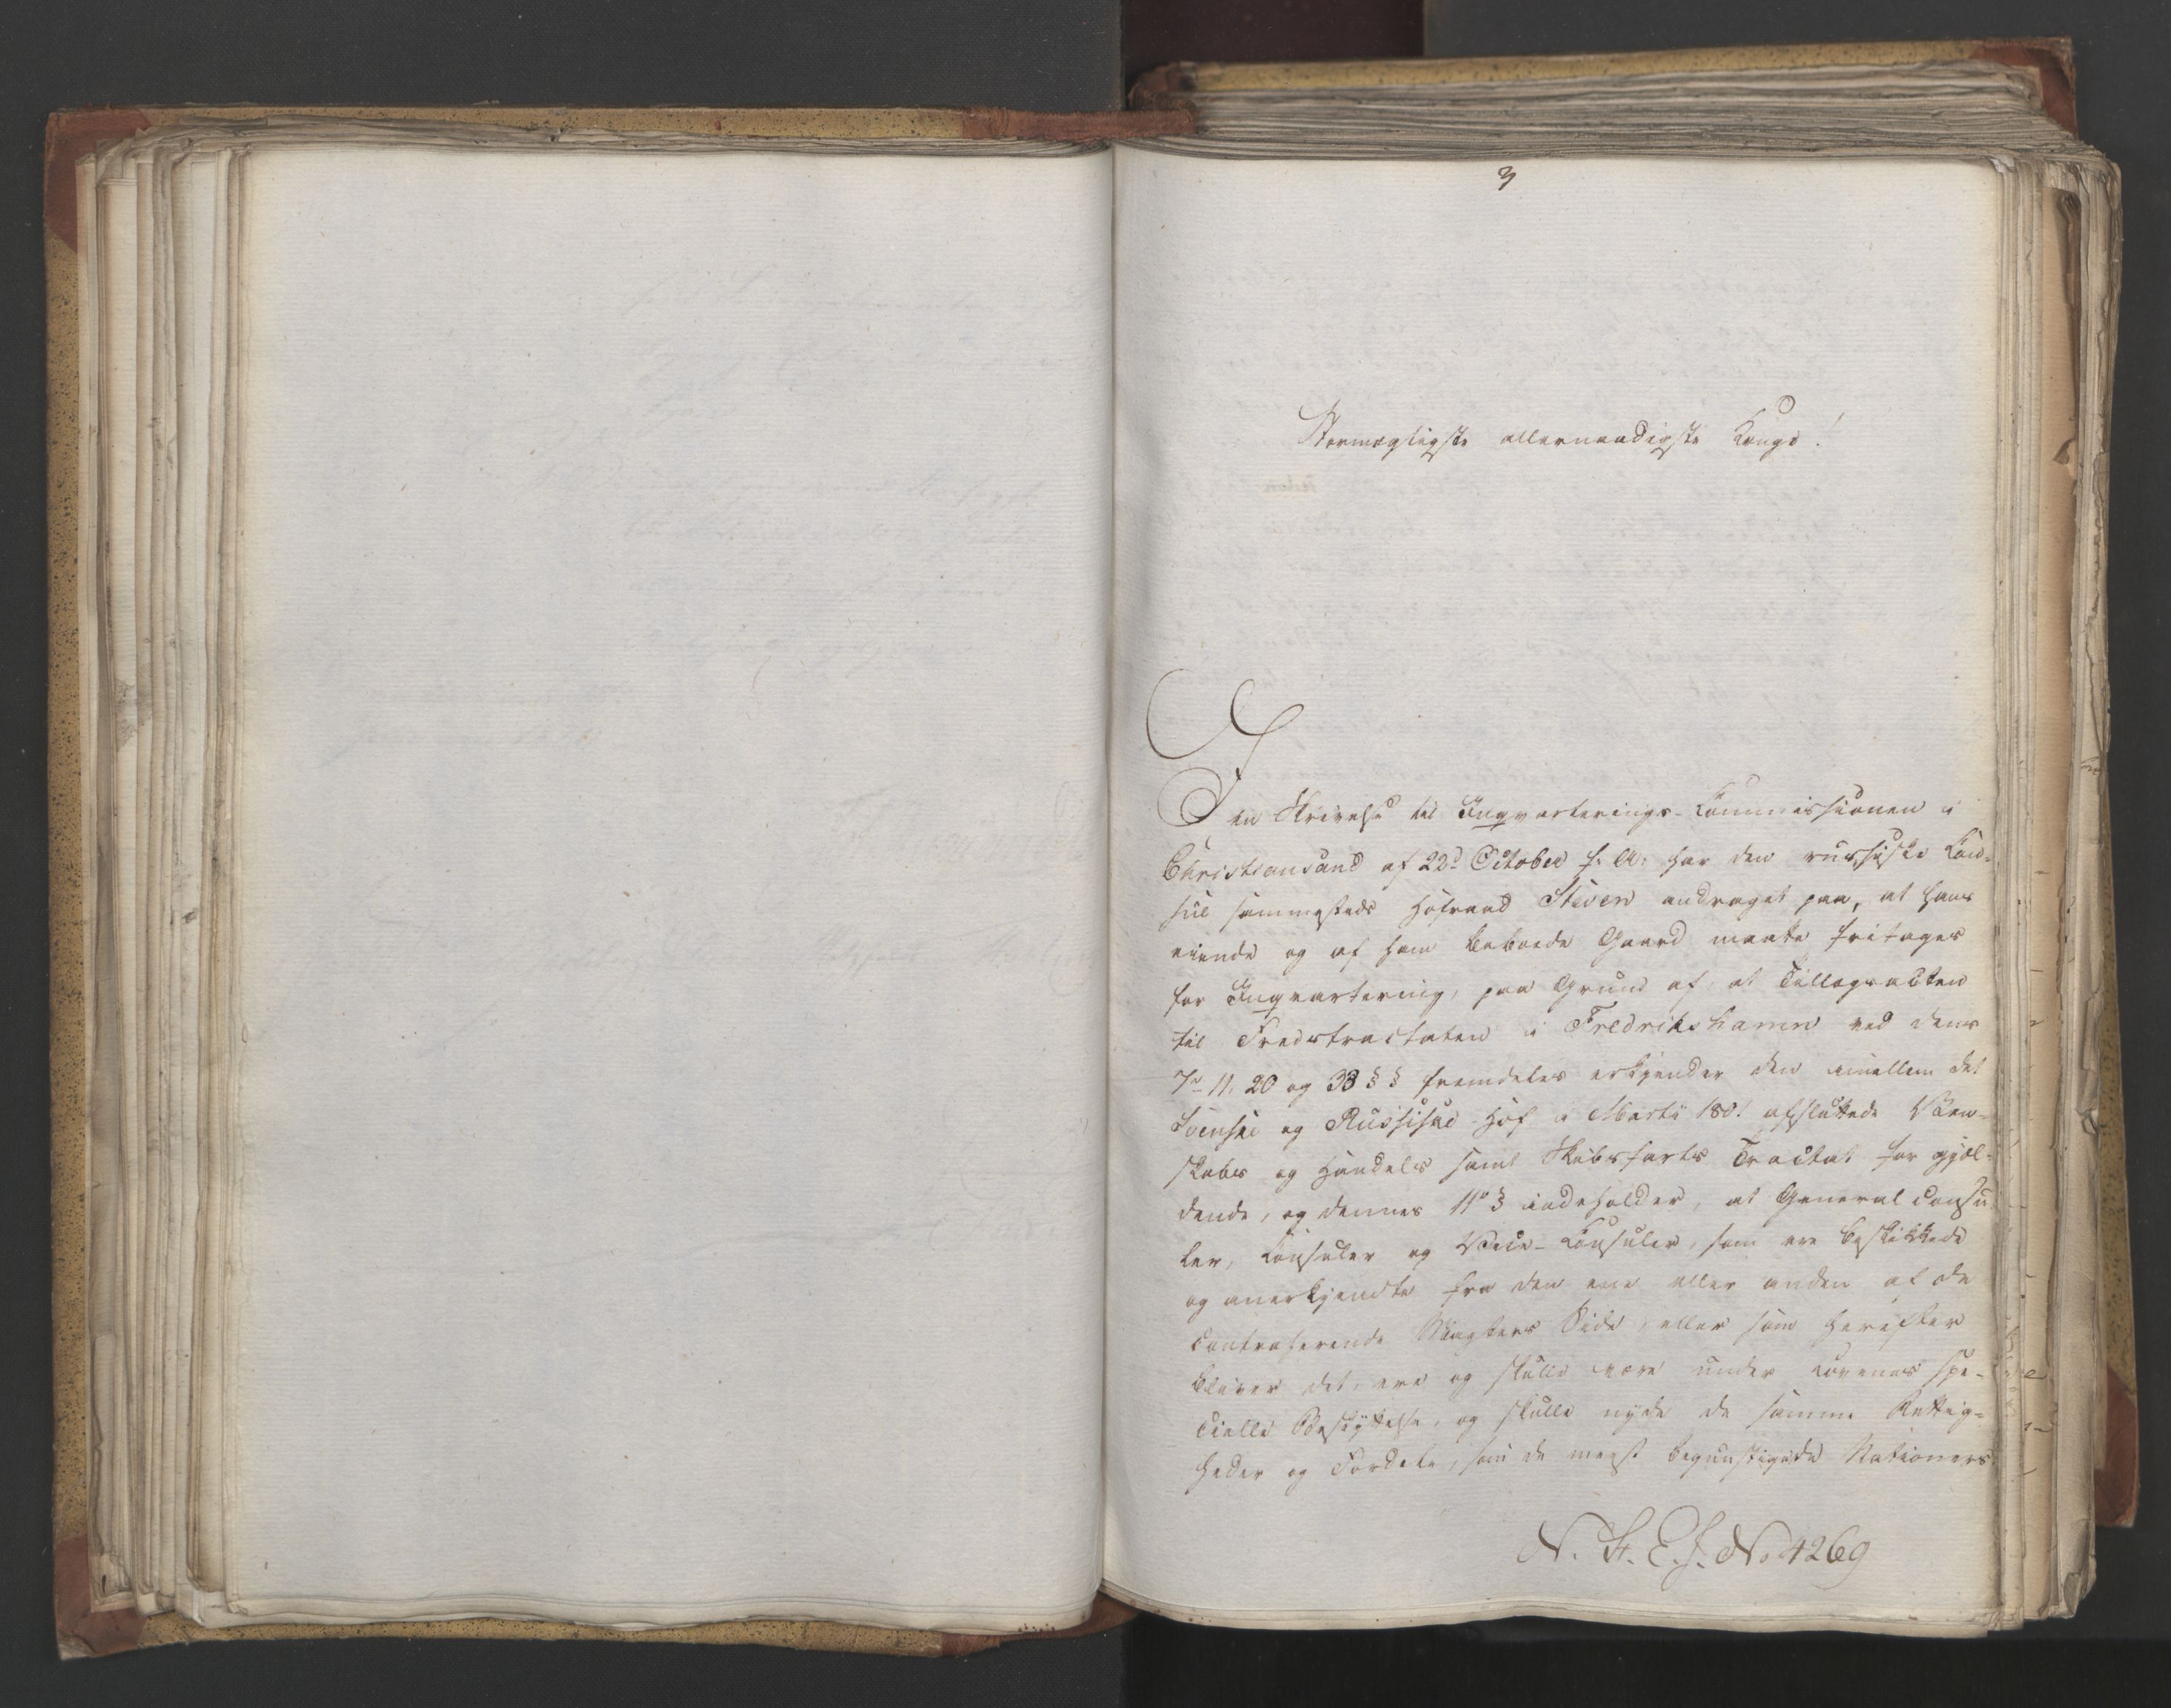 3
Stormægtigste allernaadigste Konge!
I en Skrivelse til Inqvarterings-Commissionen i
Christiansand af 22d October f: A: har den russiske Con-
sul sammesteds Hofraad Steven andraget paa, at hans
eiende og af ham beboede Gaard maatte fritages
for Inqvartering, paa Grund af, at Tillægsacten
til Fredstractaten i Fredrikshamn ved dens
7de 11, 20 og 33 § § fremdeles erkjender den imellem det
Svenske og Russiske Hof i Martii 1801 afsluttede Ven-
skabs og Handels samt Skibsfarts Tractat for gjæl-
dende, og dennes 11te § indeholder, at General Consu
ler, Consuler og Vice-Consuler, som ere beskikkede
og anerkjendte fra den ene eller anden af de
contraherende Magters Side, eller som herefter
bliver det, ere og skulle være under Lovenes spe-
cielle Beskyttelse, og skulle nyde de samme Rettig-
heder og Fordele, som de meest begunstigede Nationers
N. St. E. J. No 4269